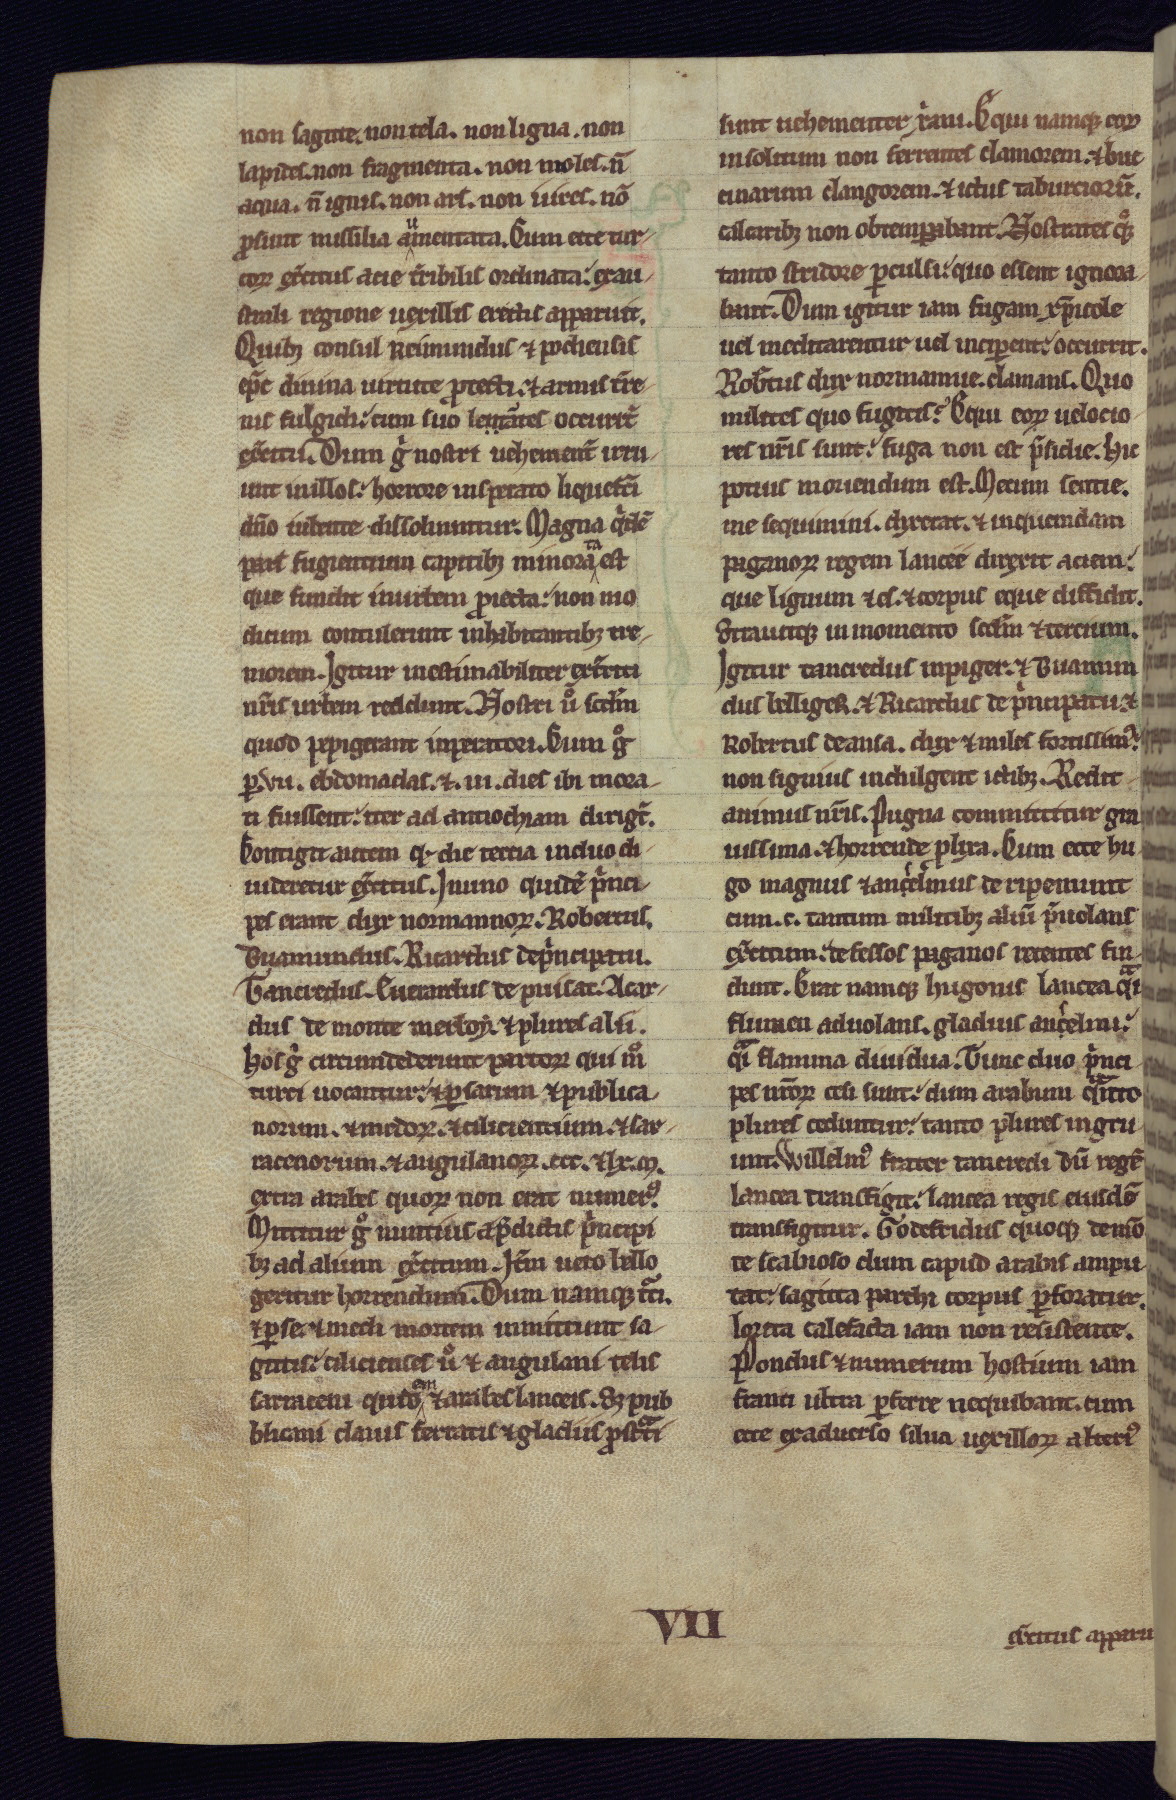 non sagitte. non tela. non ligna. non
lapides. non fragmenta. non moles. n̄
aqua. n̄ ignis. non ars. non uires. nō
ꝓsunt missilia amentata. Cum ecce tur-
coꝝ exc̄itus acie t̄ribilis ordinata: ex au-
strali regione uexillis erectis apparuit.
Quibꝫ consul Reimundus ⁊ podiensis
ep̄c diuina uirtute ꝓtecti. ⁊ armis t̄re-
nis fulgidi: cum suo letātes occurrt̄
exc̄itu. Dum gͥ nostri uehement̄ irru-
unt in illos: horrore insperato liquefc̄i
dn̄o iubente dissoluuntur. Magna qͥdē
pars fugientium capitibꝫ minorata est
que fundit in urbem ꝓiecta: non mo
dicum contulerunt inhabitantibꝫ tre-
morem. Igitur inestimabiliter exc̄itui
nr̄is urbem reddunt. Nostri uͦ scd̄m
quod pepigerant inperatori. Cum gͦ
ꝑ. vii. ebdomadas. ⁊. iii. dies ibi mora-
ti fuissent: iter ad antiochiam dirigt̄.
Contigit autem qͩ die tercia in duo di-
uideretur exc̄itus. In uno quidē pͥnci-
pes erant dux normannoꝝ. Robertus.
Buamundus. Ricardus de pͥncipatu.
Tancredus. Euerardus de puisat. Acar-
dus de monte merloy. ⁊ plures alii.
Hos gͥ circumdederunt partoꝝ qui mͦ
turci uocantur: ⁊ ꝑsarum ⁊ publica-
norum. ⁊ medoꝝ. ⁊ cilicientium. ⁊ sar-
racenorum. ⁊ angulanoꝝ. ccc. ⁊ lx. ɱ.
extra arabes quoꝝ non erat numerꝰ
Mittitur gͦ nuntius a p̄dictis pͥncipi
bꝫ ad alium exc̄itum. It̄m uero bello
geritur horrendum. Dum namqꝫ t̄ci.
⁊ ꝑse. ⁊ medi mortem inmittunt sa-
gittis: cilicienses uͦ ⁊ angulani telis
sarraceni quidē ⁊ arabes lanceis. Sꝫ pub
blicani clauis ferratis ⁊ gladiis ꝓstͣti
sunt uehementer xͥani. Equi namqꝫ eoꝝ
insolitum non ferentes clamorem. ⁊ buc
cinarum clangorem. ⁊ ictus taburcioꝝ.
calcaribꝫ non obtemꝑabant. Nostrates qͦꝫ
tanto stridore ꝑculsi: quo essent ignora-
bant. Dum igitur iam fugam xp̄icole
uel meditarentur uel incipent: occurrit.
Rob̄tus dux normannie. clamans. Quo
milites quo fugitis? Equi eoꝝ uelocio-
res nr̄is sunt: fuga non est p̄sidie. hic
potius moriendum est. Mecum sentite.
me sequimini. dixerat. ⁊ in quendam
paganoꝝ regem lancee direxit aciem:
que lignum ⁊ es. ⁊ corpus eque diffidit.
Strauitqꝫ in momento scd̄m ⁊ tercium.
Igitur tancredus inpiger. ⁊ Buamun
dus belliger. ⁊ Ricardus de pͥncipatu ⁊
Robertus de ansa. dux ⁊ miles fortissimꝰ.
non signius indulgent ictibꝫ. Redit-
animus nr̄is. Pugna committitur gra
uissima. ⁊ horrende ꝓlixa. Cum ecce hu-
go magnus ⁊ ancelinus de ripemunt
cum. c. tantum militibꝫ aliū p̄uolans
exc̄itum: defessos paganos recentes fin-
dunt. Erat namqꝫ hugonis lancea qͣi
flumen aduolans. gladius ancelini:
qͣi flamma diuidua. Tunc duo pͥnci
pes nr̄oꝝ cesi sunt. dum arabum qͣnto
plures ceduntur: tanto plures ingru-
unt. Willelmꝰ frater tancredi dū regē
lancea transfigit: lancea regis eiusdē
transfigitur. Godefridus quoqꝫ de mō
te scabioso dum capud arabis ampu
tat: sagitta parthi corpus ꝑforatur.
lorica calefacta iam non resistente.
Pondus ⁊ numerum hostium iam
franci ultra ꝑferre nequibant. cum
ecce ex aduerso silua uexilloꝝ alteriꝰ
VII
exc̄itus apparu